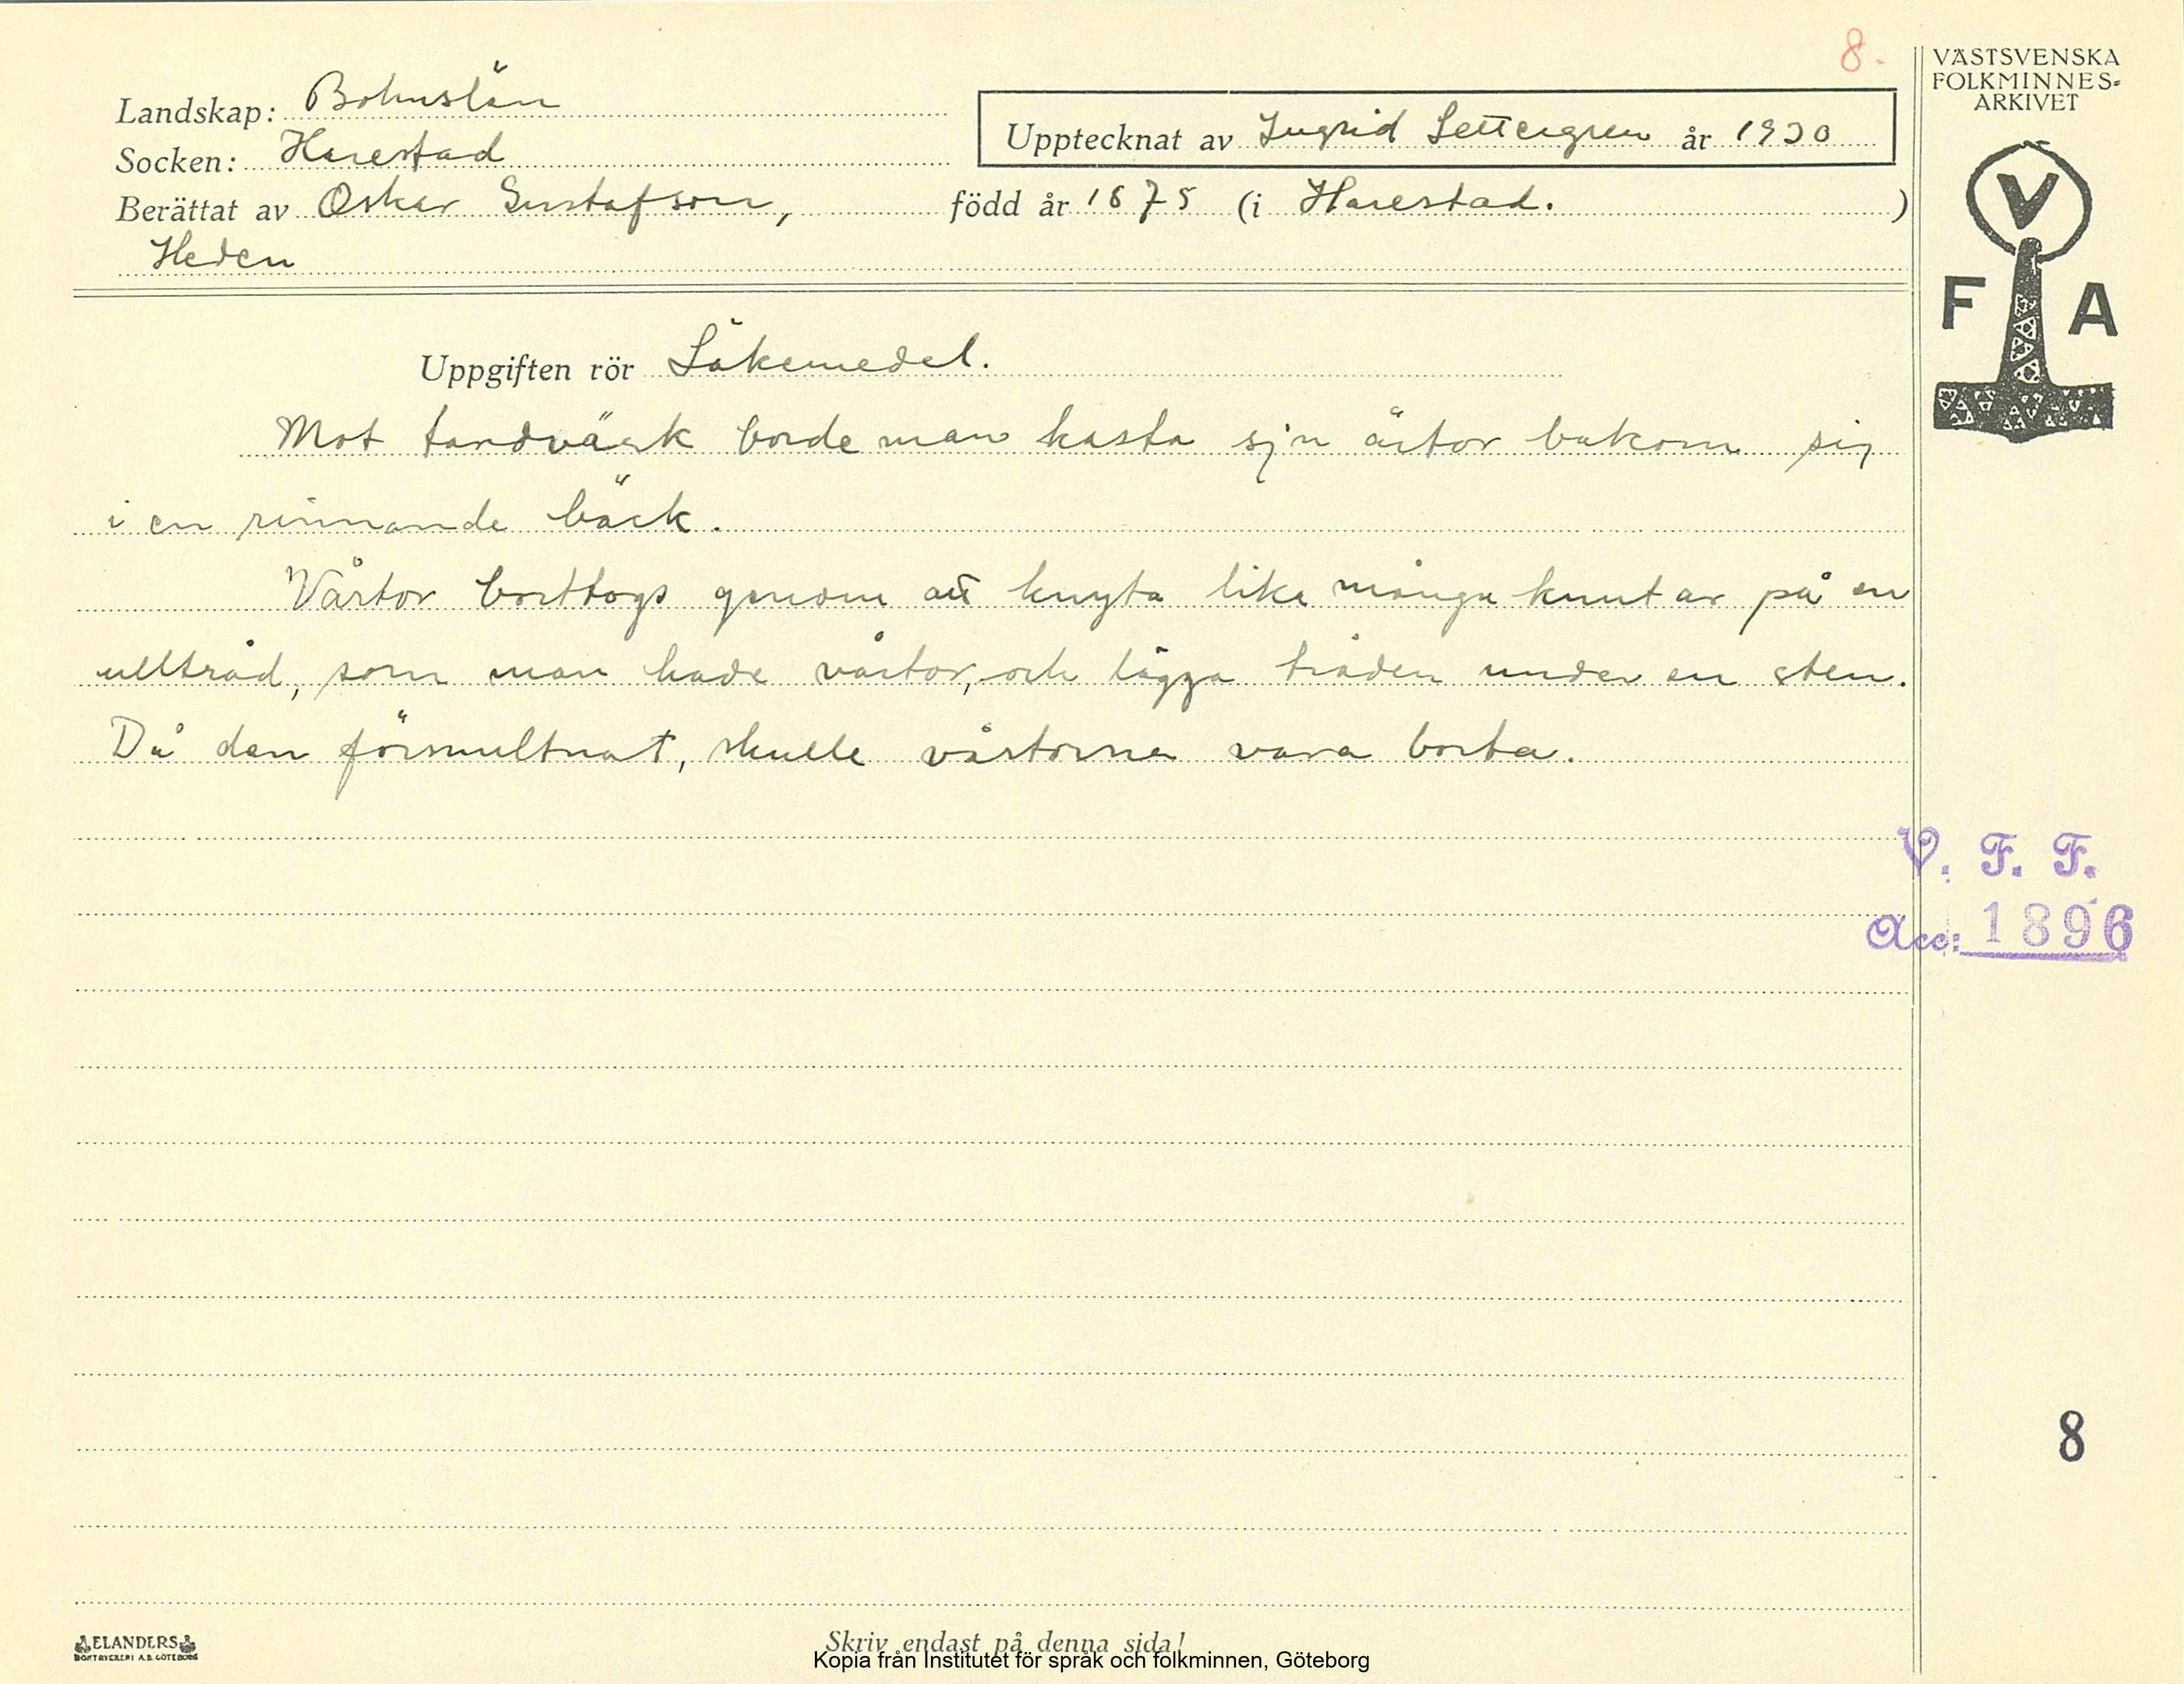 8.
VÄSTSVENSKA
FOLKMINNES-
ARKIVET
V
F A
Landskap: Bohuslän
Upptecknat av Ingrid Settergren år 1930
Socken: Harestad
Berättat av Oskar Gustafson, född år 1875 (i Harestad. )
Heden
Uppgiften rör Läkemedel.
Mot tandvärk borde man kasta sju ärtor bakom sig
i en rinnande bäck.
Vårtor borttogs genom att knyta lika många knutar på en
ulltråd, som man hade vårtor, och lägga tråden under en sten.
Då den förmultnat, skulle vårtorna vara borta.
V. F. F.
Acc: 1896
8
ELANDERS
BOKTRYCKERI A.B. GÖTEBORG
Skriv endast på denna sida!
Kopia från Institutet för språk och folkminnen, Göteborg